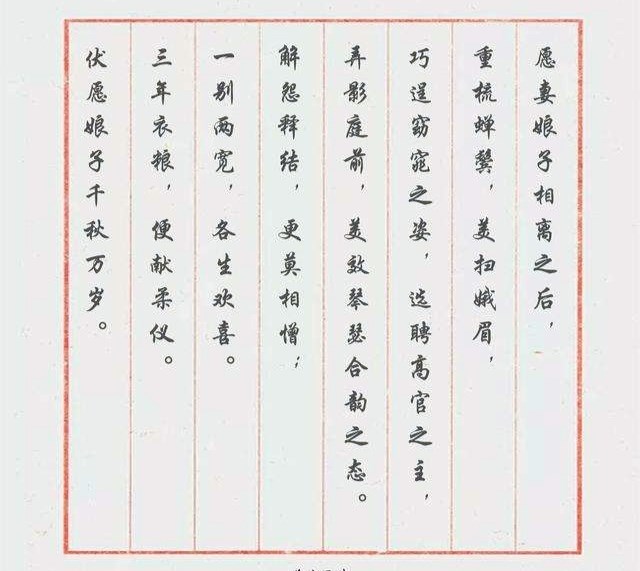 愿妻娘子相离之后，
重梳蝉鬓，美扫娥眉，
巧逞窈窕之姿，选聘高官之主，
弄影庭前，美效琴瑟合韵之态。
解怨释结，更莫相憎；
一别两宽，各生欢喜。
三年衣粮，便献柔仪。
伏愿娘子千秋万岁。